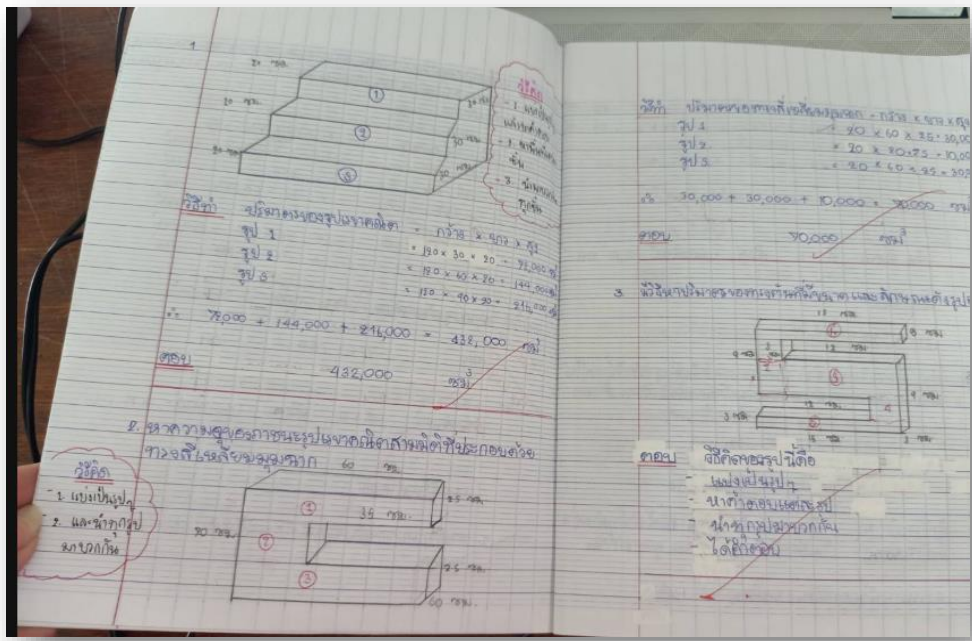 1
20 ซม.
20 ซม.
20 ซม.
①
②
③
20 ซม.
30 ซม.
30 ซม.
วิธีคิด
- 1
- 2
ชั้น
- 3.
ทุกชั้น
วิธีทำ ปริมาตรของรูปเรขาคณิต = กว้าง × ยาว × สูง
รูป 1 = 120 × 30 × 20 = 72,000
รูป 2 = 120 × 60 × 20 = 144,000
รูป 3 = 120 × 90 × 20 = 216,000
∴ 72,000 + 144,000 + 216,000 = 432,000 ซม³
ตอบ 432,000 ซม³
2. หาความจุของภาชนะรูปเรขาคณิตสามมิติที่ประกอบด้วย
ทรงสี่เหลี่ยมมุมฉาก
วิธีคิด
- 1 แบ่งเป็นรูปๆ
- 2. และนำทุกรูป
มาบวกกัน
60 ซม.
①
35 ซม.
25 ซม.
②
③
25 ซม.
60 ซม.
วิธีทำ ปริมาตรของทรงสี่เหลี่ยมมุมฉาก = กว้าง × ยาว × สูง
รูป 1 = 20 × 60 × 25 = 30,00
รูป 2. = 20 × 20 × 25 = 10,00
รูป 3. = 20 × 60 × 25 = 30,0
∴ 30,000 + 30,000 + 10,000 = 70,000 ซม
ตอบ 70,000 ซม³
3 มีวิธีหาปริมาตรของทรงตันที่มีขนาดและลักษณะดังรูป
ซม
12 ซม
⑤
9 ซม
12 ซม
4
3 ซม
ซม
ตอบ วิธีคิดของรูปนี้คือ
- แบ่งเป็นรูปๆ
- หาคำตอบแต่ละรูป
- นำทุกรูปมาบวกกัน
- ได้คำตอบ